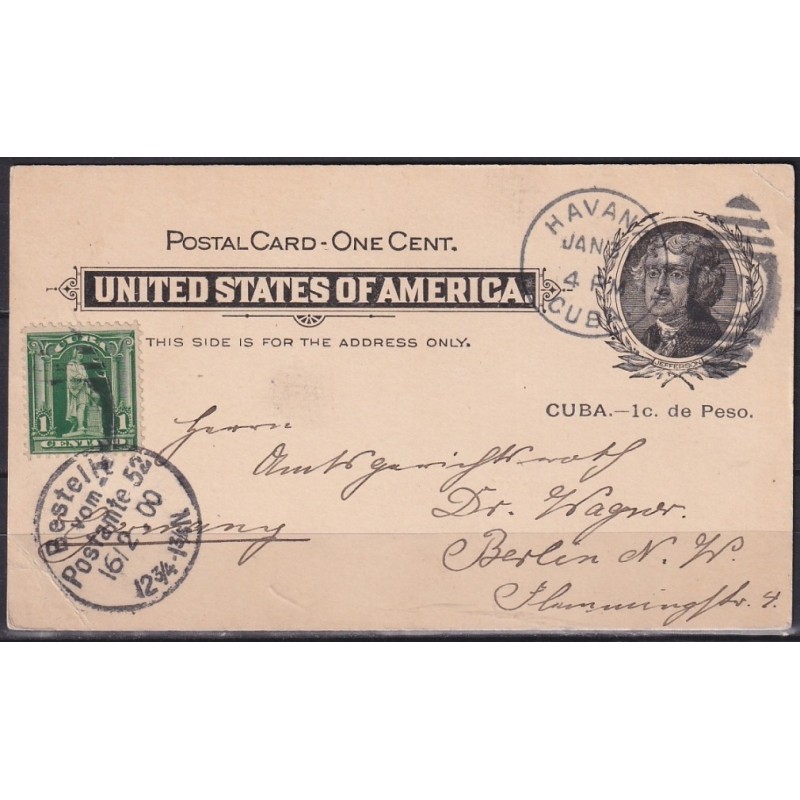 HAVAN
JAN
4 PM
CUBA
POSTAL CARD - ONE CENT.
UNITED STATES OF AMERICA.
THIS SIDE IS FOR THE ADDRESS ONLY.
JEFFERSON
CUBA.—1c. de Peso.
1 1
Herrn
Amtsgerichtsrath
Dr. Wagner.
Berlin N. W.
Flemmingstr. 4.
Germany
Bestellt
vom
Postamte 52
16/2 00
12¾-1¾N